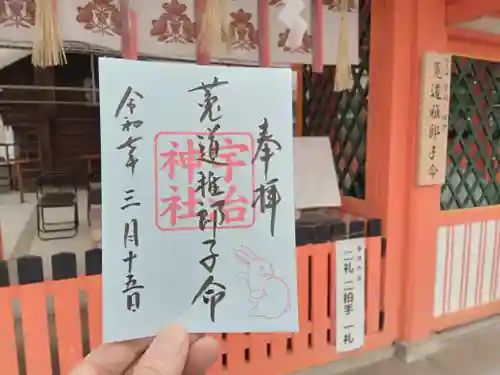 奉拝
宇治
神社
莵道稚郎子命
令和七年 三月十五日
莵道稚郎子
二礼 二拍手 一礼